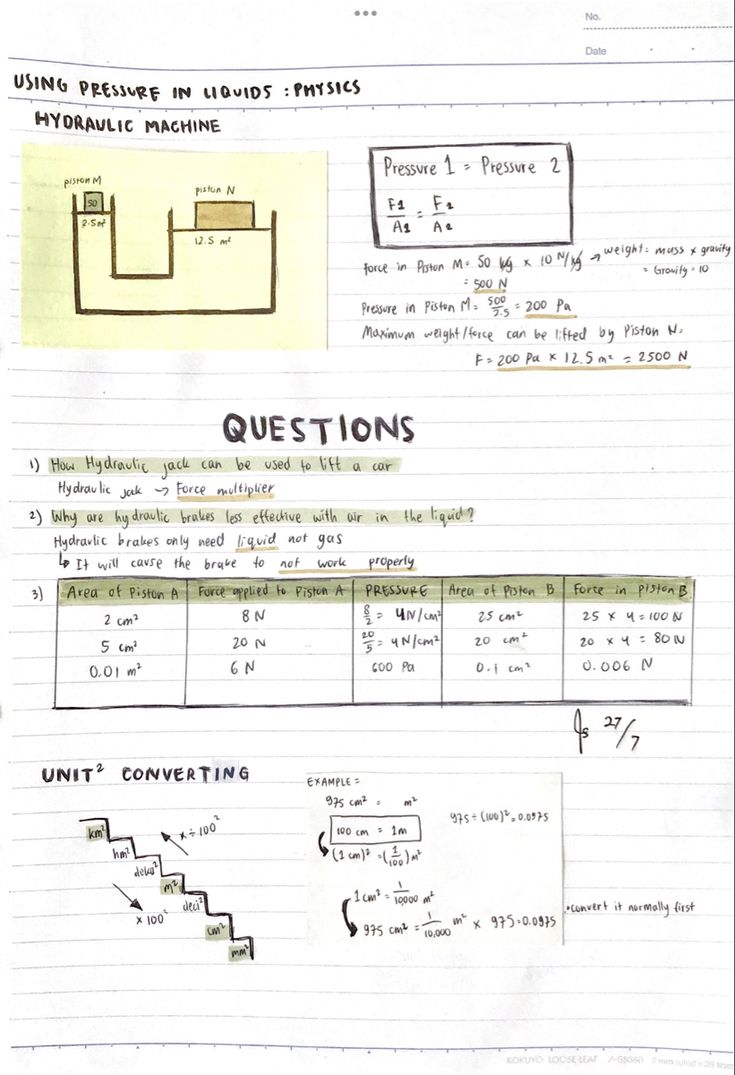 No.
Date
USING PRESSURE IN LIQUIDS : PHYSICS
HYDRAULIC MACHINE
piston M
50
2.5m²
piston N
12.5 m²
Pressure 1 = Pressure 2
F1/A1 = F2/A2
Force in Piston M = 50 kg × 10 N/kg → weight = mass × gravity
= 500 N
= Gravity = 10
Pressure in Piston M = 500/2.5 = 200 Pa
Maximum weight/force can be lifted by Piston N.
F = 200 Pa × 12.5 m² = 2500 N
QUESTIONS
1) How Hydraulic jack can be used to lift a car
Hydraulic jak → Force multiplier
2) Why are hydraulic brakes less effective with air in the liquid?
Hydraulic brakes only need liquid not gas
↳ It will cause the brake to not work properly
3) Area of Piston A | Force applied to Piston A | PRESSURE | Area of Piston B | Force in piston B
2 cm² | 8 N | 8/2 = 4N/cm² | 25 cm² | 25 × 4 = 100 N
5 cm² | 20 N | 20/5 = 4N/cm² | 20 cm² | 20 × 4 = 80 N
0.01 m² | 6 N | 600 Pa | 0.1 cm² | 0.006 N
27/7
UNIT² CONVERTING
km²
hm²
deka²
m²
deci²
cm²
mm²
x ÷ 100²
× 100²
EXAMPLE =
975 cm² = m²
100 cm = 1m
(1 cm)² = (1/100)m²
1cm² = 1/10000 m²
975 cm² = 1/10,000 m² × 975 = 0.0975
975 ÷ (100)² = 0.0975
• convert it normally first
KOKUYO LOOSE-LEAF